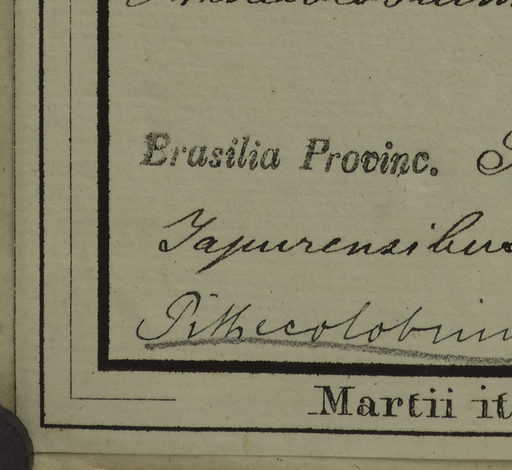 Brasilia Provinc.
Japurensibus
Pithecolobium
Martii it